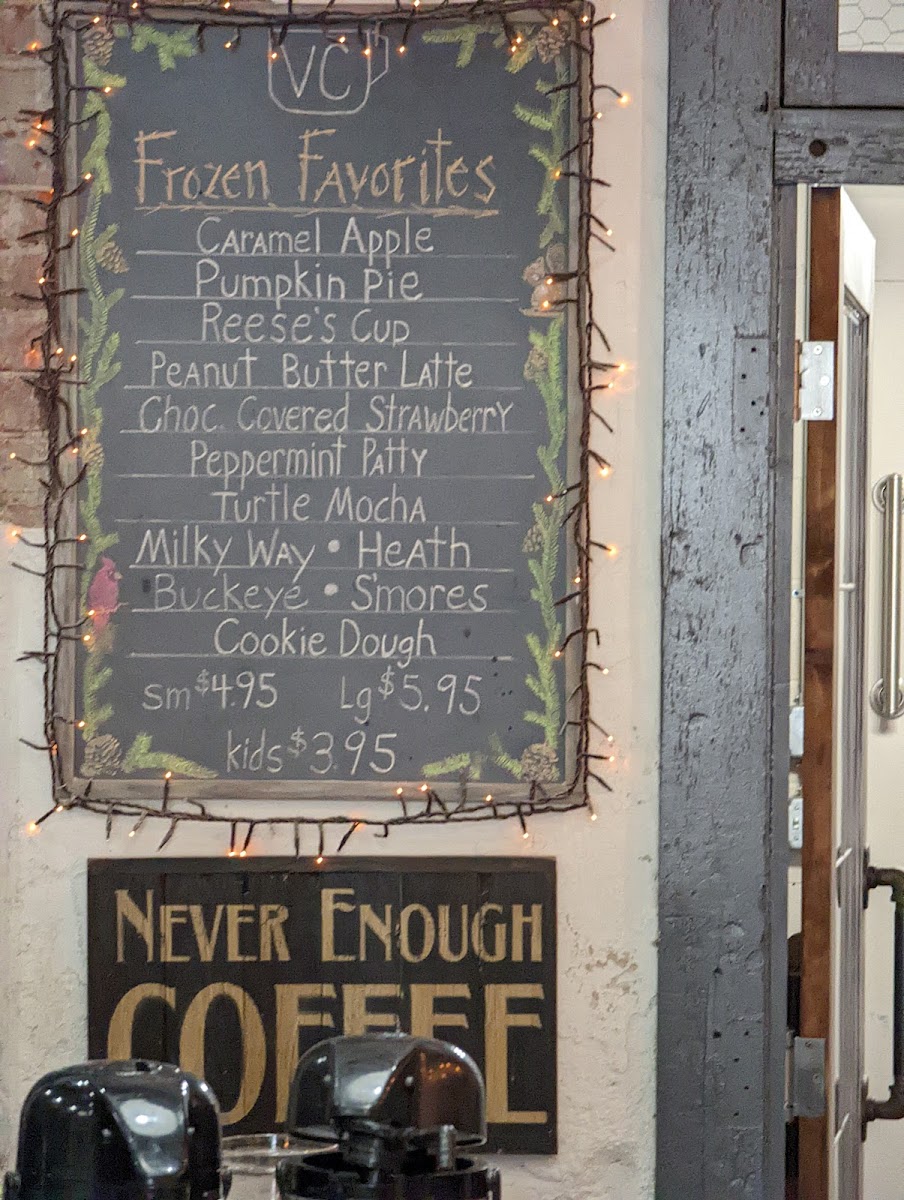 VC
Frozen Favorites
Caramel Apple
Pumpkin Pie
Reese's Cup
Peanut Butter Latte
Choc. Covered Strawberry
Peppermint Patty
Turtle Mocha
Milky Way • Heath
Buckeye • S'mores
Cookie Dough
sm $4.95 Lg $5.95
kids $3.95
Never Enough
COFFEE